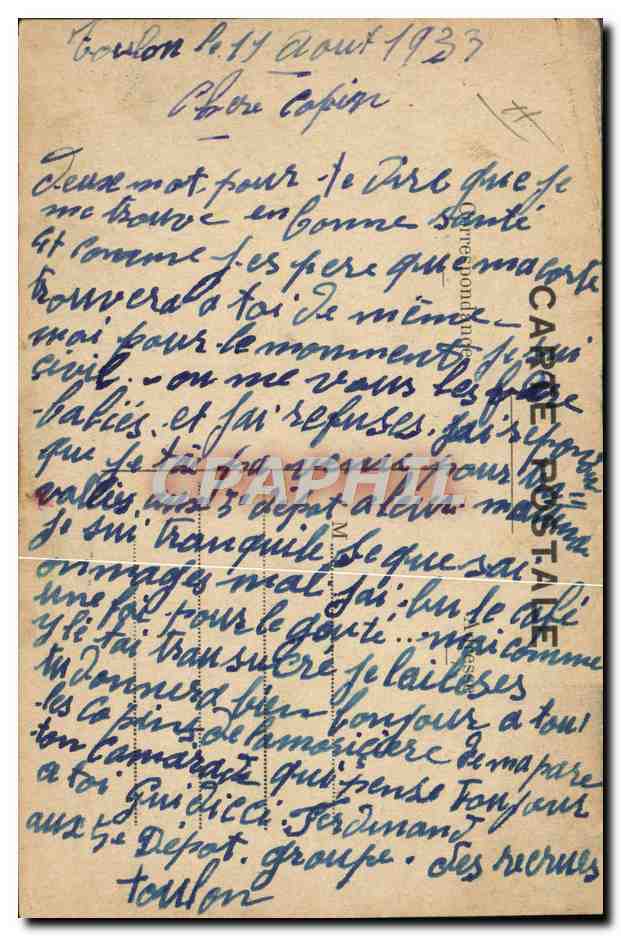 Toulon le 11 Aout 1933
Chere Copin
deux mot pour te dire que je
me trouve en bonne santé
et comme j'espere que ma carte
trouvera a toi de même
moi pour le momment je sui
civil. on me vous les
babiés. et j'ai refuses. j'ai repondu
que je pour
aux 5e dépot a leur
je sui tranquile je que sai
mal j'ai bu le café
une foi pour le gouté... mai comme
y lé tai tran sucre je lai
tu donnera bien bonjour a tout
les copins de lamoriciere de ma pare
ton camarade qui pense toujour
a toi Guidicci Ferdinand
aux 5e Dépot. groupe. des recrues
toulon
CARTE POSTALE
Correspondance
Adresse
M
CPAPHIL